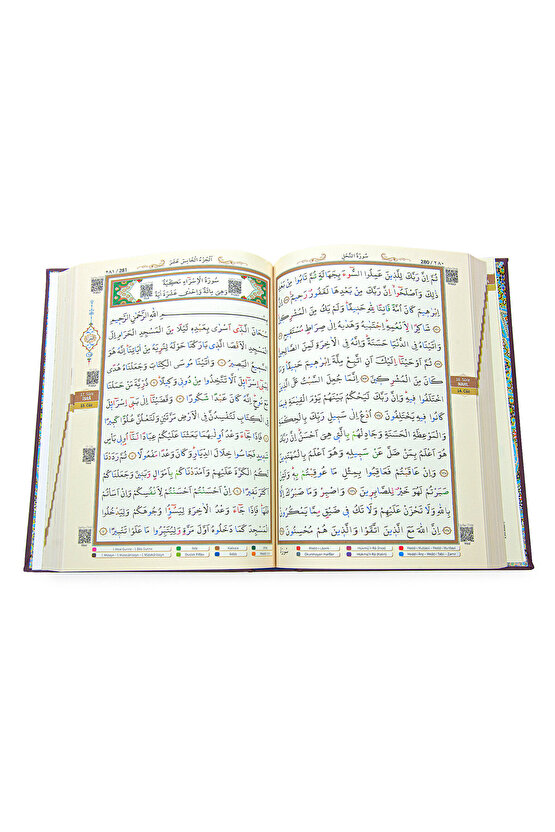 سُورَةُ النَّحْلِ
280 / ٢٨٠
ثُمَّ اِنَّ رَبَّكَ لِلَّذ۪ينَ عَمِلُوا السُّٓوءَ بِجَهَالَةٍ ثُمَّ تَابُوا مِنْ بَعْدِ
ذٰلِكَ وَاَصْلَحُٓوا اِنَّ رَبَّكَ مِنْ بَعْدِهَا لَغَفُورٌ رَح۪يمٌ اِنَّ
اِبْرٰه۪يمَ كَانَ اُمَّةً قَانِتًا لِلّٰهِ حَن۪يفًا وَلَمْ يَكُ مِنَ الْمُشْرِك۪ينَ
شَاكِرًا لِاَنْعُمِهِ اِجْتَبٰيهُ وَهَدٰيهُ اِلٰى صِرَاطٍ مُسْتَق۪يمٍ
وَاٰتَيْنَاهُ فِي الدُّنْيَا حَسَنَةً وَاِنَّهُ فِي الْاٰخِرَةِ لَمِنَ الصَّالِح۪ينَ
ثُمَّ اَوْحَيْنَٓا اِلَيْكَ اَنِ اتَّبِعْ مِلَّةَ اِبْرٰه۪يمَ حَن۪يفًا وَمَا
كَانَ مِنَ الْمُشْرِك۪ينَ اِنَّمَا جُعِلَ السَّبْتُ عَلَى الَّذ۪ينَ
اخْتَلَفُوا ف۪يهِ وَاِنَّ رَبَّكَ لَيَحْكُمُ بَيْنَهُمْ يَوْمَ الْقِيٰمَةِ ف۪يمَا
كَانُوا ف۪يهِ يَخْتَلِفُونَ اُدْعُ اِلٰى سَب۪يلِ رَبِّكَ بِالْحِكْمَةِ
وَالْمَوْعِظَةِ الْحَسَنَةِ وَجَادِلْهُمْ بِالَّت۪ي هِيَ اَحْسَنُ اِنَّ رَبَّكَ
هُوَ اَعْلَمُ بِمَنْ ضَلَّ عَنْ سَب۪يلِه۪ وَهُوَ اَعْلَمُ بِالْمُهْتَد۪ينَ
وَاِنْ عَاقَبْتُمْ فَعَاقِبُوا بِمِثْلِ مَا عُوقِبْتُمْ بِه۪ وَلَئِنْ
صَبَرْتُمْ لَهُوَ خَيْرٌ لِلصَّابِر۪ينَ وَاصْبِرْ وَمَا صَبْرُكَ اِلَّا
بِاللّٰهِ وَلَا تَحْزَنْ عَلَيْهِمْ وَلَا تَكُ ف۪ي ضَيْقٍ مِمَّا يَمْكُرُونَ
اِنَّ اللّٰهَ مَعَ الَّذ۪ينَ اتَّقَوْا وَالَّذ۪ينَ هُمْ مُحْسِنُونَ
NAHL
14. Cüz
اَلْجُزْءُ الْخَامِسُ عَشَرَ
٢٨١ / 281
سُورَةُ الْاِسْرَٓاءِ مَكِّيَّةٌ
وَهِيَ مِائَةٌ وَاِحْدٰى عَشْرَةَ اٰيَةً
بِسْمِ اللّٰهِ الرَّحْمٰنِ الرَّح۪يمِ
سُبْحَانَ الَّذ۪ٓي اَسْرٰى بِعَبْدِه۪ لَيْلًا مِنَ الْمَسْجِدِ الْحَرَامِ اِلَى
الْمَسْجِدِ الْاَقْصَا الَّذ۪ي بَارَكْنَا حَوْلَهُ لِنُرِيَهُ مِنْ اٰيَاتِنَا اِنَّهُ هُوَ
السَّم۪يعُ الْبَص۪يرُ وَاٰتَيْنَا مُوسَى الْكِتَابَ وَجَعَلْنَاهُ هُدًى
لِبَن۪ٓي اِسْرَٓائ۪لَ اَلَّا تَتَّخِذُوا مِنْ دُون۪ي وَك۪يلًا ذُرِّيَّةَ مَنْ حَمَلْنَا
مَعَ نُوحٍ اِنَّهُ كَانَ عَبْدًا شَكُورًا وَقَضَيْنَٓا اِلٰى بَن۪ٓي اِسْرَٓائ۪لَ
فِي الْكِتَابِ لَتُفْسِدُنَّ فِي الْاَرْضِ مَرَّتَيْنِ وَلَتَعْلُنَّ عُلُوًّا كَب۪يرًا
فَاِذَا جَٓاءَ وَعْدُ اُو۫لٰيهُمَا بَعَثْنَا عَلَيْكُمْ عِبَادًا لَنَٓا اُو۬ل۪ي بَأْسٍ
شَد۪يدٍ فَجَاسُوا خِلَالَ الدِّيَارِ وَكَانَ وَعْدًا مَفْعُولًا ثُمَّ رَدَدْنَا
لَكُمُ الْكَرَّةَ عَلَيْهِمْ وَاَمْدَدْنَاكُمْ بِاَمْوَالٍ وَبَن۪ينَ وَجَعَلْنَاكُمْ
اَكْثَرَ نَف۪يرًا اِنْ اَحْسَنْتُمْ اَحْسَنْتُمْ لِاَنْفُسِكُمْ وَاِنْ اَسَأْتُمْ
فَلَهَا فَاِذَا جَٓاءَ وَعْدُ الْاٰخِرَةِ لِيَسُٓوؤُ۫ا وُجُوهَكُمْ وَلِيَدْخُلُوا
الْمَسْجِدَ كَمَا دَخَلُوهُ اَوَّلَ مَرَّةٍ وَلِيُتَبِّرُوا مَا عَلَوْا تَتْب۪يرًا
İSRÂ
15. Cüz